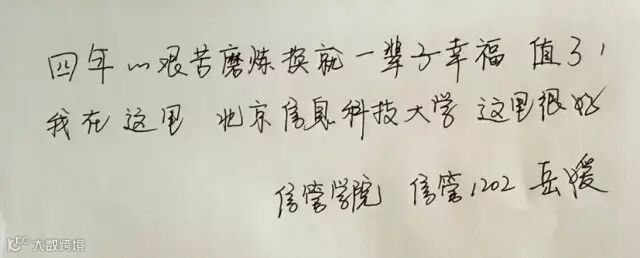 四年的艰苦磨炼换就一辈子幸福 值了,
我在这里 北京信息科技大学 这里很好
信管学院 信管1202 岳媛
大数跨境